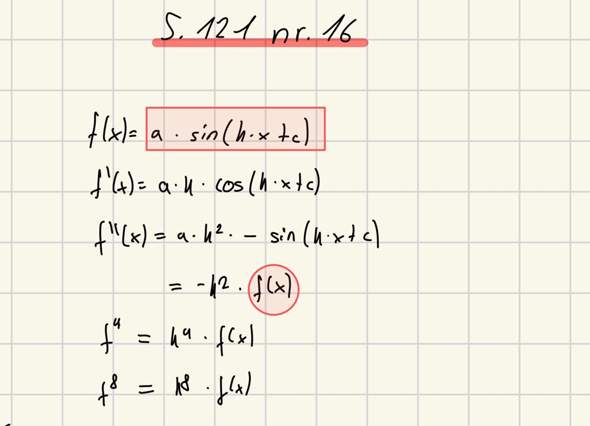 S. 121 nr. 16
f(x)= a · sin(k·x+c)
f'(x)= a·k· cos(k·x+c)
f''(x) = a·k²· - sin(k·x+c)
= -k² · f(x)
f⁴ = k⁴ · f(x)
f⁸ = k⁸ · f(x)